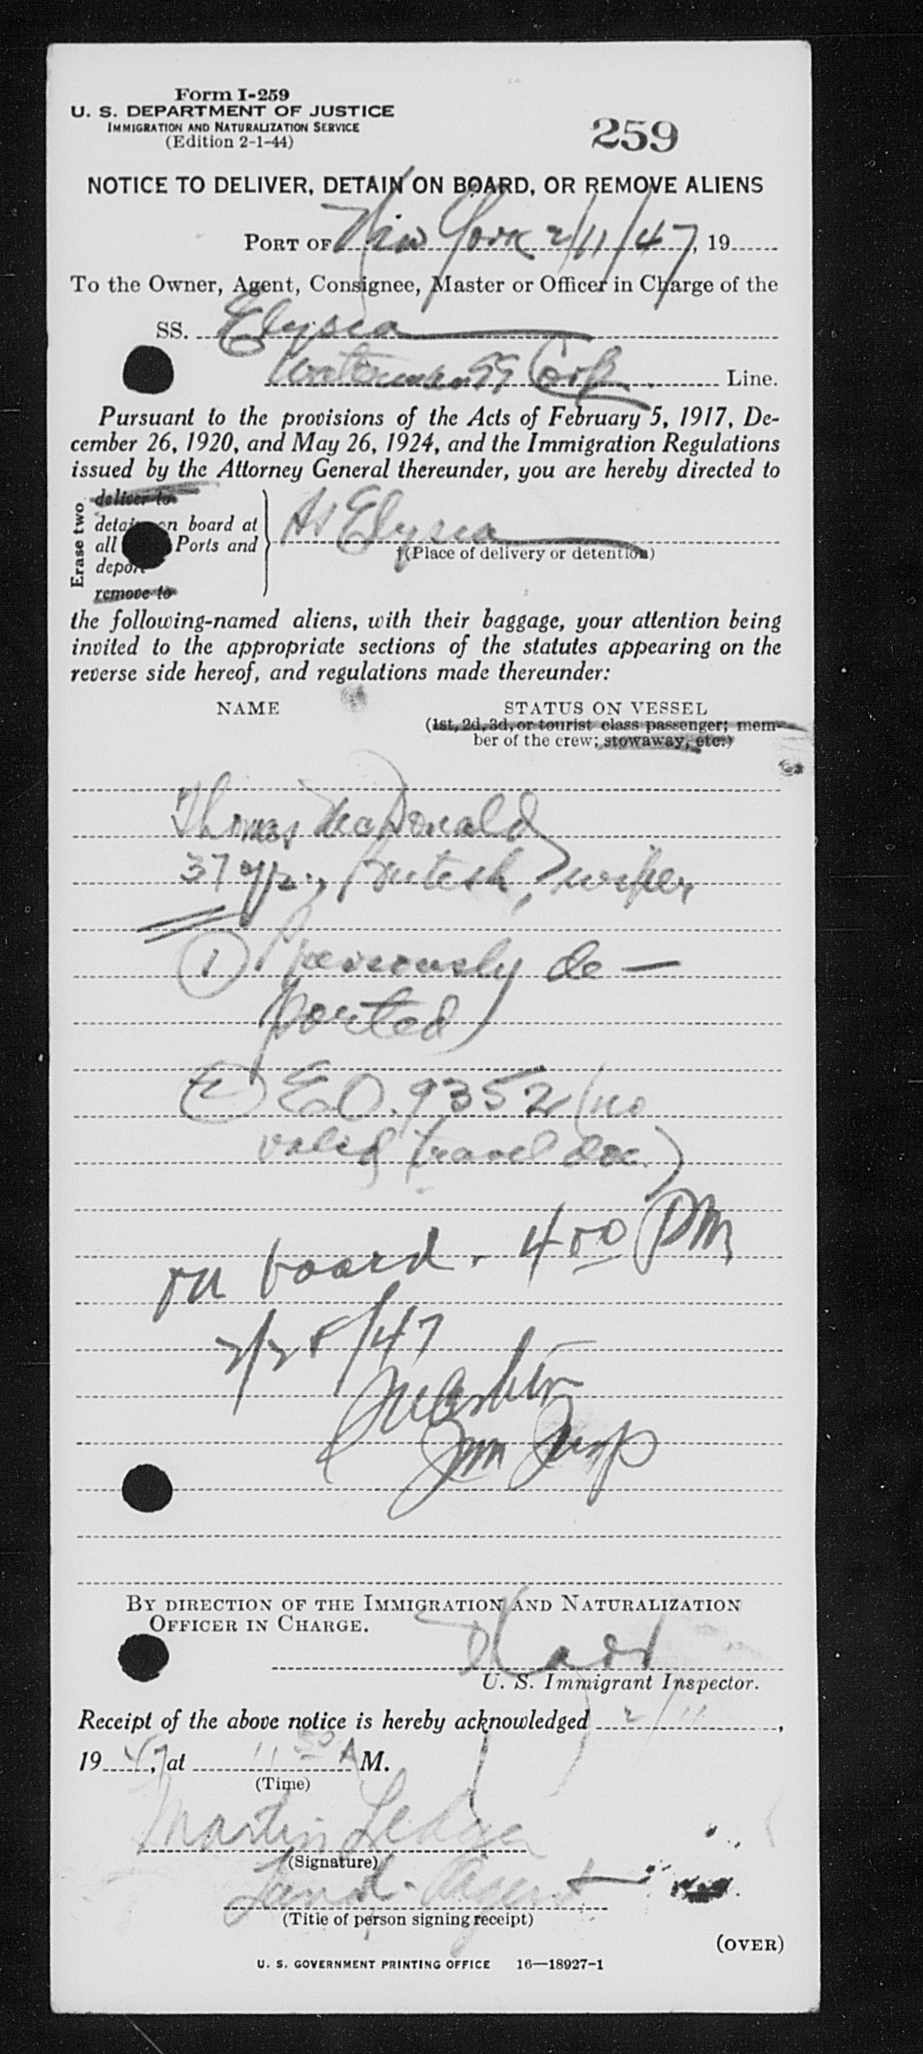 Form I-259
U. S. DEPARTMENT OF JUSTICE
IMMIGRATION AND NATURALIZATION SERVICE
(Edition 2-1-44)
259
NOTICE TO DELIVER, DETAIN ON BOARD, OR REMOVE ALIENS
PORT OF New York 2/11/47, 19
To the Owner, Agent, Consignee, Master or Officer in Charge of the
SS. Elysia
Waterman SS Corp. Line.
Pursuant to the provisions of the Acts of February 5, 1917, De-
cember 26, 1920, and May 26, 1924, and the Immigration Regulations
issued by the Attorney General thereunder, you are hereby directed to
Erase two
deliver to
detain on board at
all Ports and
deport
remove to
Elysia
†(Place of delivery or detention)
the following-named aliens, with their baggage, your attention being
invited to the appropriate sections of the statutes appearing on the
reverse side hereof, and regulations made thereunder:
NAME
STATUS ON VESSEL
(1st, 2d, 3d, or tourist class passenger; mem-
ber of the crew; stowaway, etc.)
Thomas MacDonald
37 yr., British, wiper
① Previously de-
ported
② EO. 9352 (no
valid travel doc.)
on board. 4 00 PM
2/28/47
Imm Insp
BY DIRECTION OF THE IMMIGRATION AND NATURALIZATION
OFFICER IN CHARGE.
U. S. Immigrant Inspector.
Receipt of the above notice is hereby acknowledged 2/11,
1947, at 11 30 A M.
(Time)
Martin
(Signature)
Agent
(Title of person signing receipt)
(OVER)
U. S. GOVERNMENT PRINTING OFFICE 16—18927-1